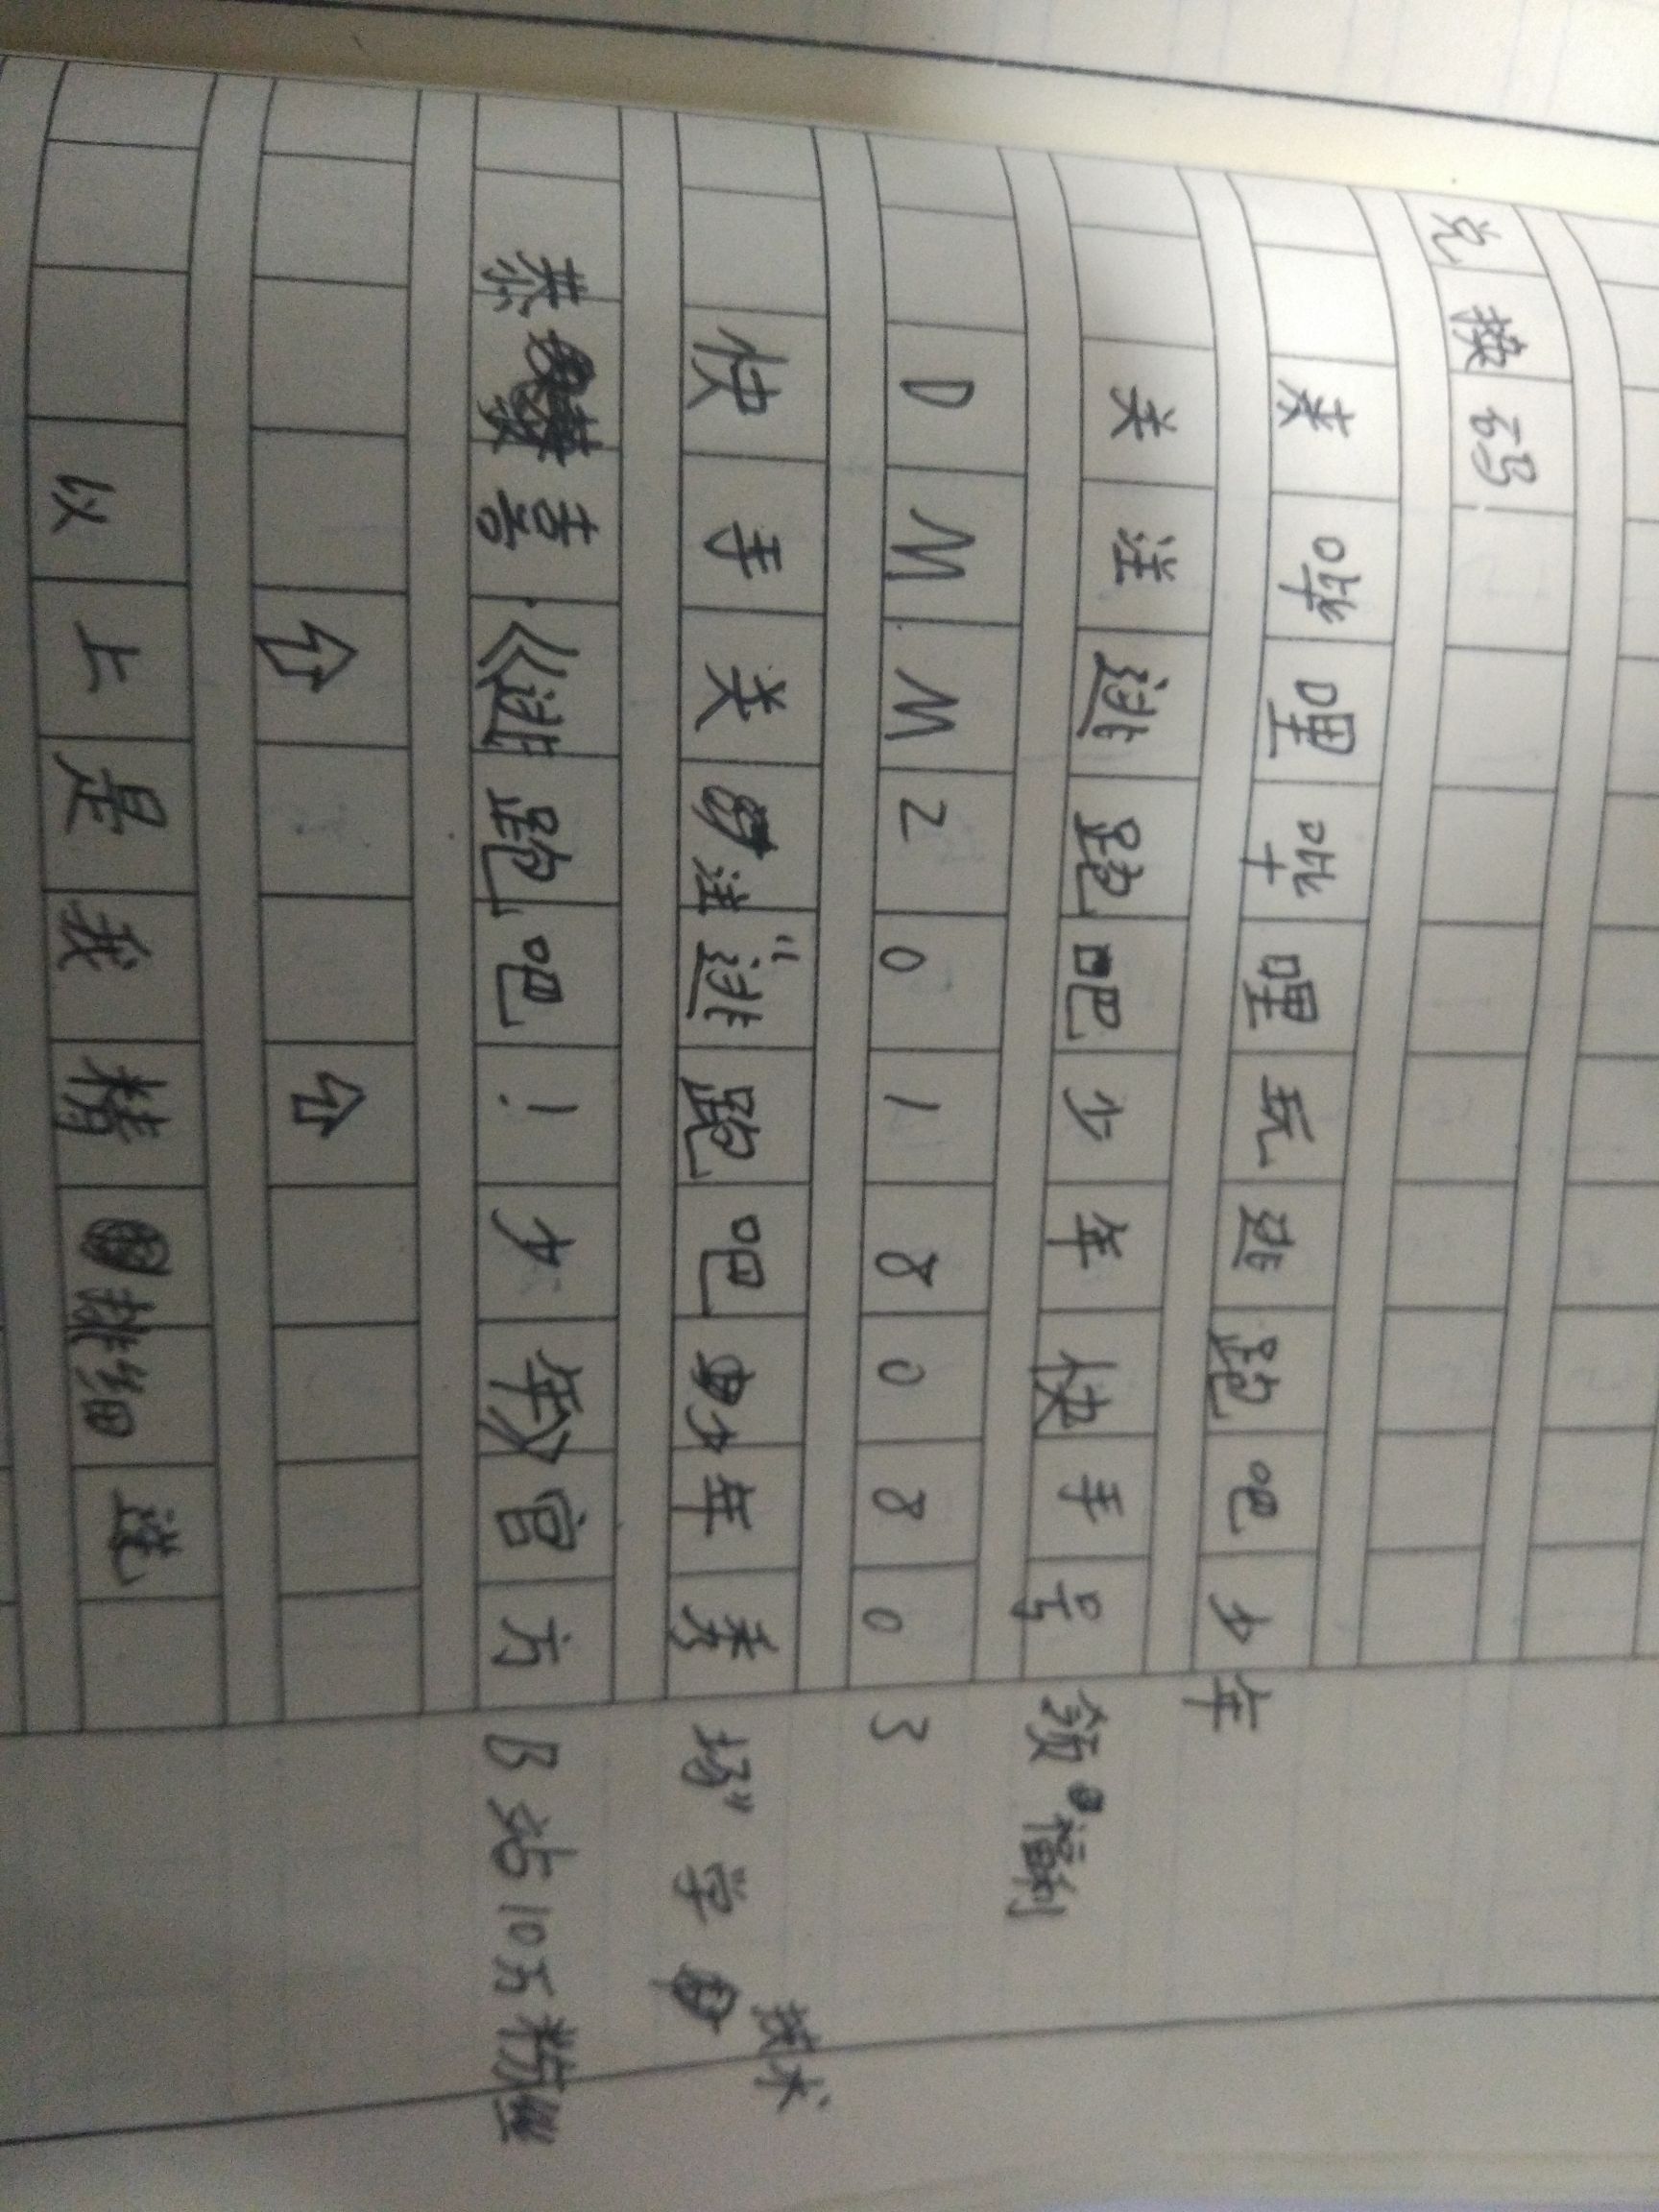 兑换码!
来哔哩哔哩玩逃跑吧少年
关注逃跑吧少年快手号领福利
DMM20180803
快手关注“逃跑吧少年秀场”学技术
恭喜《逃跑吧!少年》官方B站10万粉丝
以上是我精挑细选